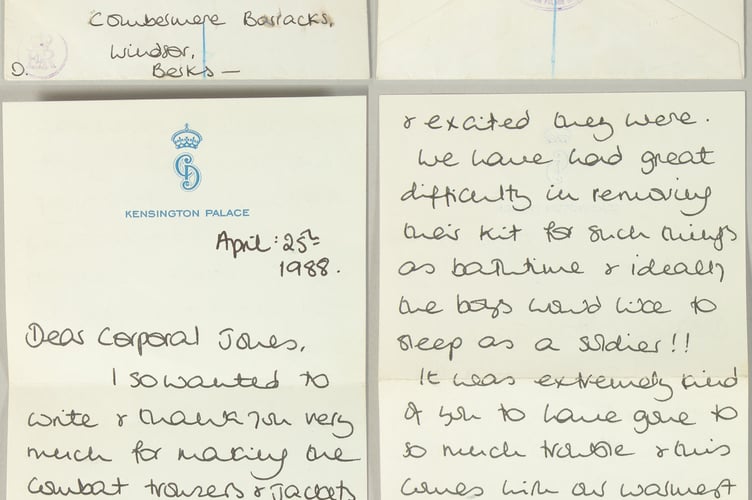 Combermere Barracks,
Windsor,
D. Berks —
KENSINGTON PALACE
April: 25th
1988.
Dear Corporal Jones,
I so wanted to
write & thank you very
much for making the
combat trousers & jackets
& excited they were.
We have had great
difficulty in removing
their kit for such things
as bathtime & ideally
the boys would like to
sleep as a soldier!!
It was extremely kind
of you to have gone to
so much trouble & this
comes with our warmest